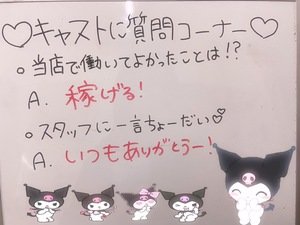 ♡キャストに質問コーナー♡
○当店で働いてよかったことは!?
A. 稼げる!
○スタッフに一言ちょーだい♡
A. いつもありがとうー!